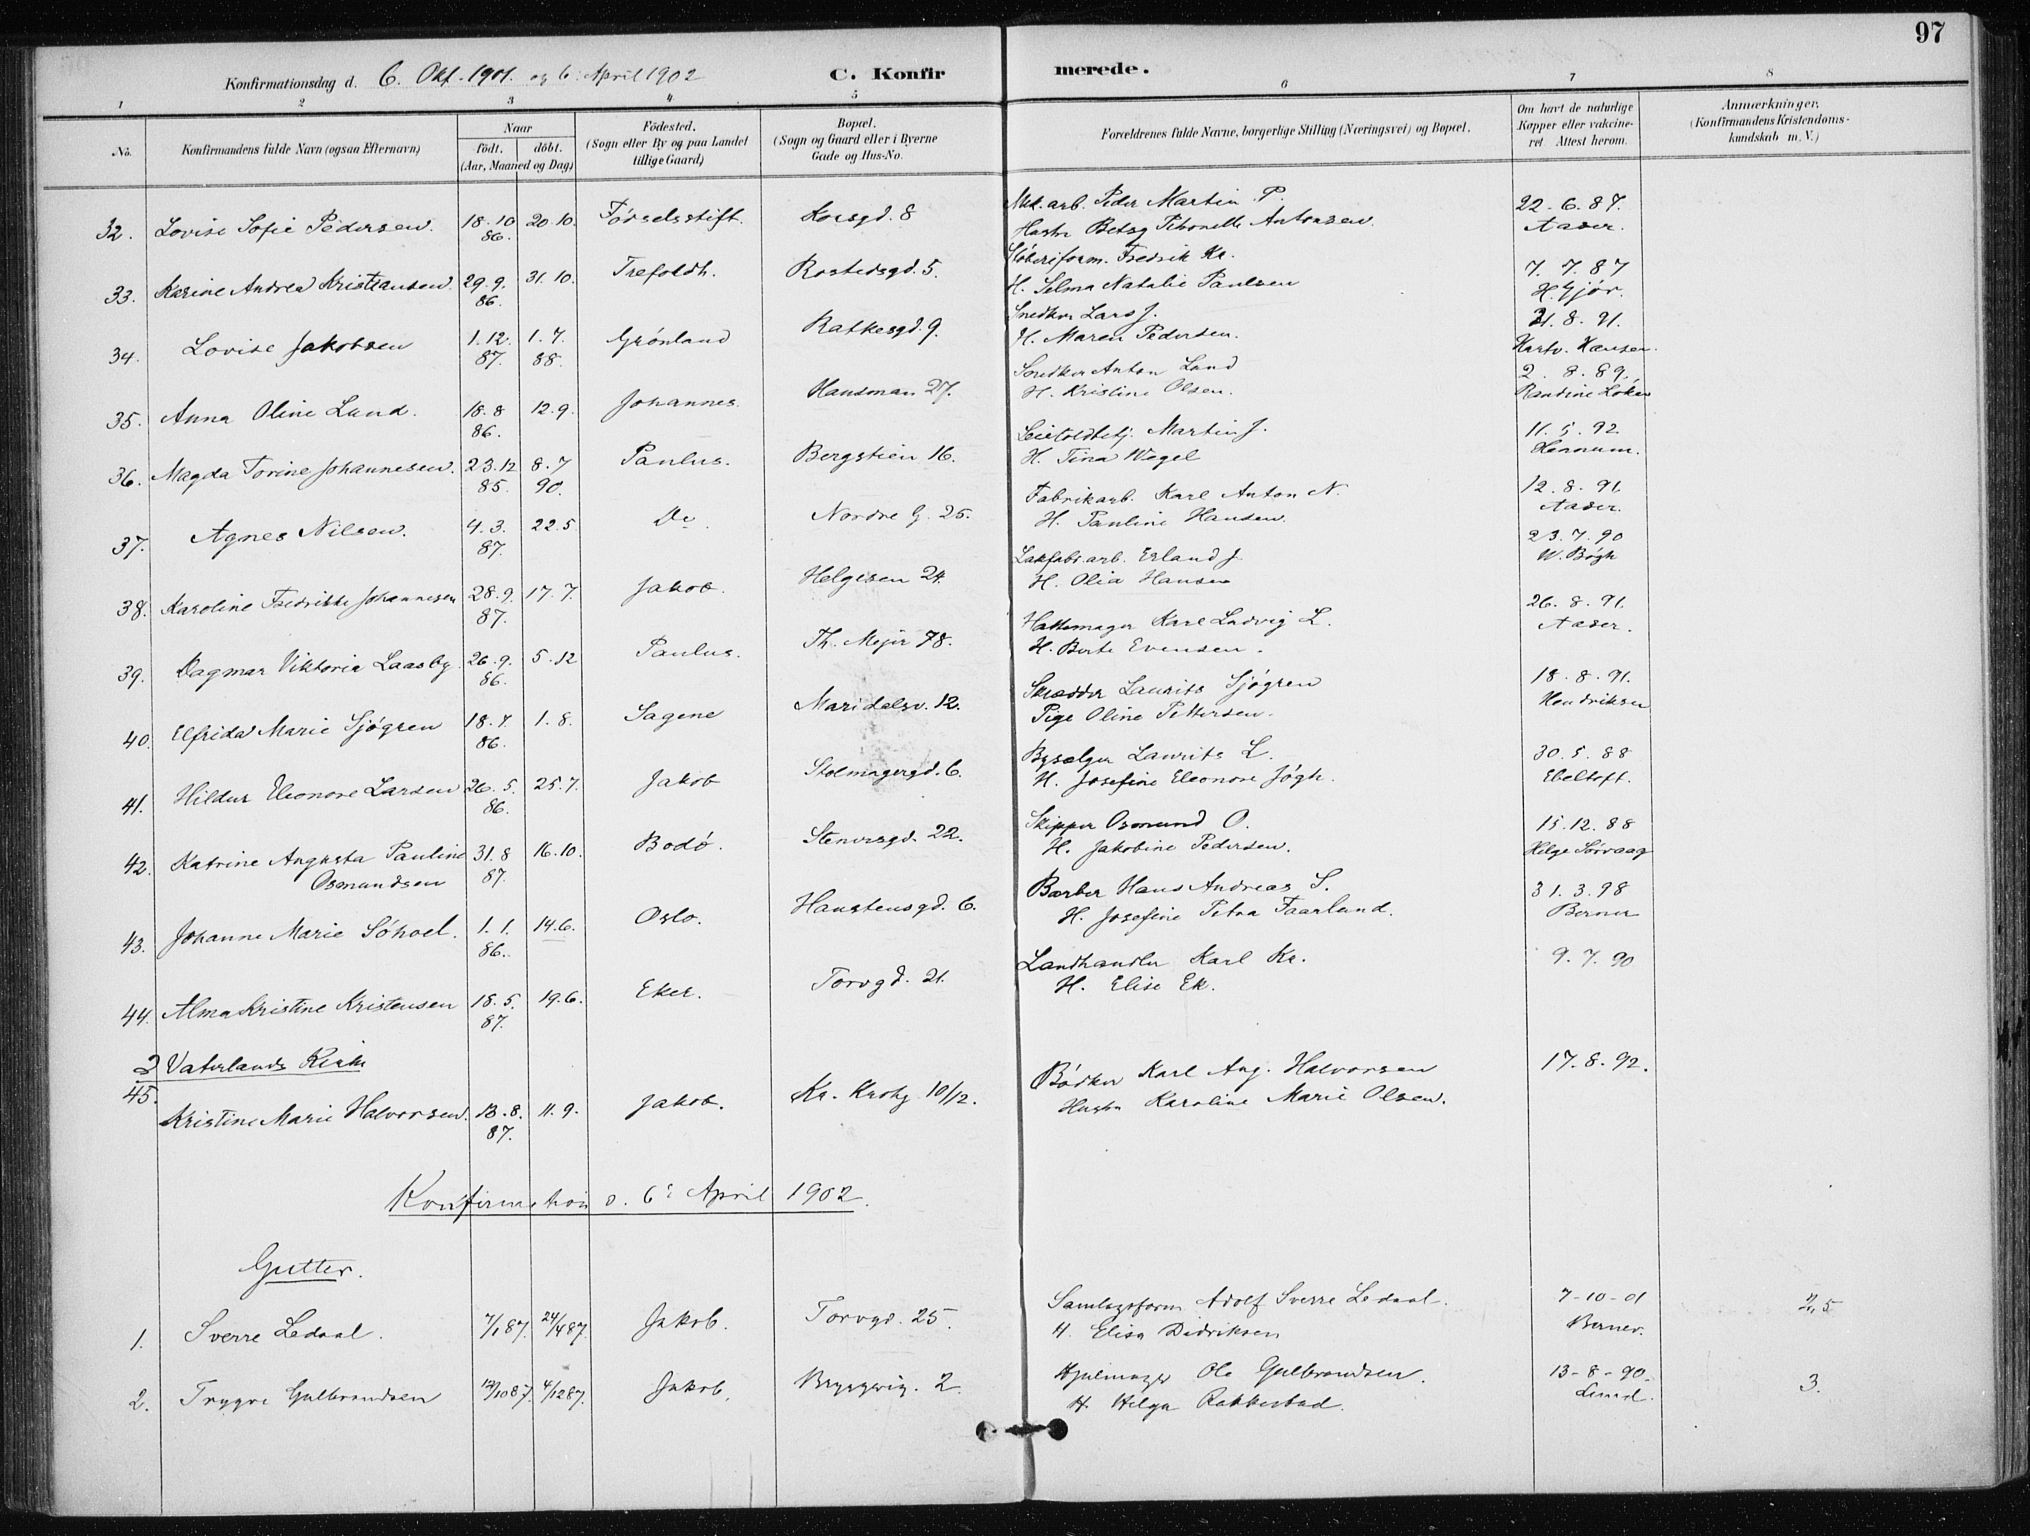 97
Konfirmationsdag d. 6. Okt. 1901. og 6. April 1902 C. Konfirmerede.
1 2 3 4 5 6 7 8
No. Konfirmandens fulde Navn (ogsaa Efternavn) Naar født. døbt. (Aar, Maaned og Dag) Fødested. (Sogn eller By og paa Landet tillige Gaard) Bopæl. (Sogn og Gaard eller i Byerne Gade og Hus-No. Forældrenes fulde Navne, borgerlige Stilling (Næringsvei) og Bopæl. Om havt de naturlige Kopper eller vakcineret Attest herom. Anmærkninger. (Konfirmandens Kristendomskundskab m. V.)
32. Lovise Sofie Pedersen. 18.10 86. 20.10. Fødselsstift. Korsgd. 8 Mek. arb. Peder Martin P. 22-6.87.
Hustr Betsy Petronelle Antonsen. Aaser.
33. Karine Andrea Kristiansen. 29.9. 86. 31.10. Trefoldh. Rostedsgd. 5. Støberiform. Fredrik Kr. 7. 7. 87
H. Selma Natalie Paulsen H. Gjør.
34. Lovise Jakobsen 1.12. 87. 1.7. 88. Grønland Ratkesgd. 9. Snedker Lars J. 21.8.91.
H. Maren Pedersen. Hartv. Hansen.
35. Anna Oline Lund. 18.8 86. 12.9. Johannes. Hausman 27. Snedker Anton Lund 2. 8.89.
H. Kristine Olsen. Randine Løken
36. Magda Torine Johannesen. 23.12 85. 8.7 90. Paulus. Bergstien 16. Martin J. 11.5.92.
H. Tina Wegel
37. Agnes Nilsen. 4.3. 87. 22.5 Do. Nordre G. 25. Fabrikarb. Karl Anton N. 12.8.91.
H. Pauline Hansen. Aaser.
38. Karoline Fredrikke Johannesen 28.9. 87. 17.7. Jakob. Helgesen 24. Lakfabr. arb. Erland J. 23.7.90
H. Olia Hansen W. Bøgh
39. Dagmar Viktoria Laasby. 26.9. 86. 5.12 Paulus. Th. Mejer 78. Hattemager Karl Ludvig L. 26.8.91.
H. Berte Evensen. Aaser.
40. Elfrida Marie Sjøgren 18.7. 86. 1.8. Sagene Maridalsv. 12. Skrædder Laurits Sjøgren 18.8.91.
Pige Oline Pettersen. Hendriksen
41. Hildur Eleonore Larsen 26.5. 86. 25.7. Jakob Stolmagergd. 6. Bysælger Laurits L. 30.5.88
H. Josefine Eleonore Jøgh. Ebeltoft.
42. Katrine Augusta Pauline 31.8 87. 16.10. Bodø. Stenersgd. 22. Skipper Osmund O. 15.12.88
Osmundsen H. Jakobine Pedersen. Helge Sørvaag
43. Johanne Marie Søhoel. 1.1. 86. 14.6. Oslo. Haustensgd. 6. Barber Hans Andreas S. 31.3.98
H. Josefine Petra Faarlund. Berner
44. Alma Kristine Kristensen 18.5. 87. 19.6. Eker. Torvgd. 21. Landhandler Karl Kr. 9.7.90
H. Elise Ek.
Vaterlands Kirke
45. Kristine Marie Halvorsen. 13.8. 87. 11.9. Jakob. Kr. Krohg 10/12. Bødker Karl Aug. Halvorsen 17.8.92.
Hustr Karoline Marie Olsen.
Konfirmation d. 6 April 1902.
Gutter.
1. Sverre Ledaal. 7/1 87. 24/4 87. Jakob. Torvgd. 25. Samlagsform Adolf Sverre Ledaal. 7-10-01 2,5
H. Elisa Didriksen Berner.
2. Trygve Gulbrandsen 12/10 87. 4/12 87. Jakob. Bryggerig. 2. Hjulmager Ole Gulbrandsen. 13-8-90. 3.
H. Helga Rakkestad. Lund.